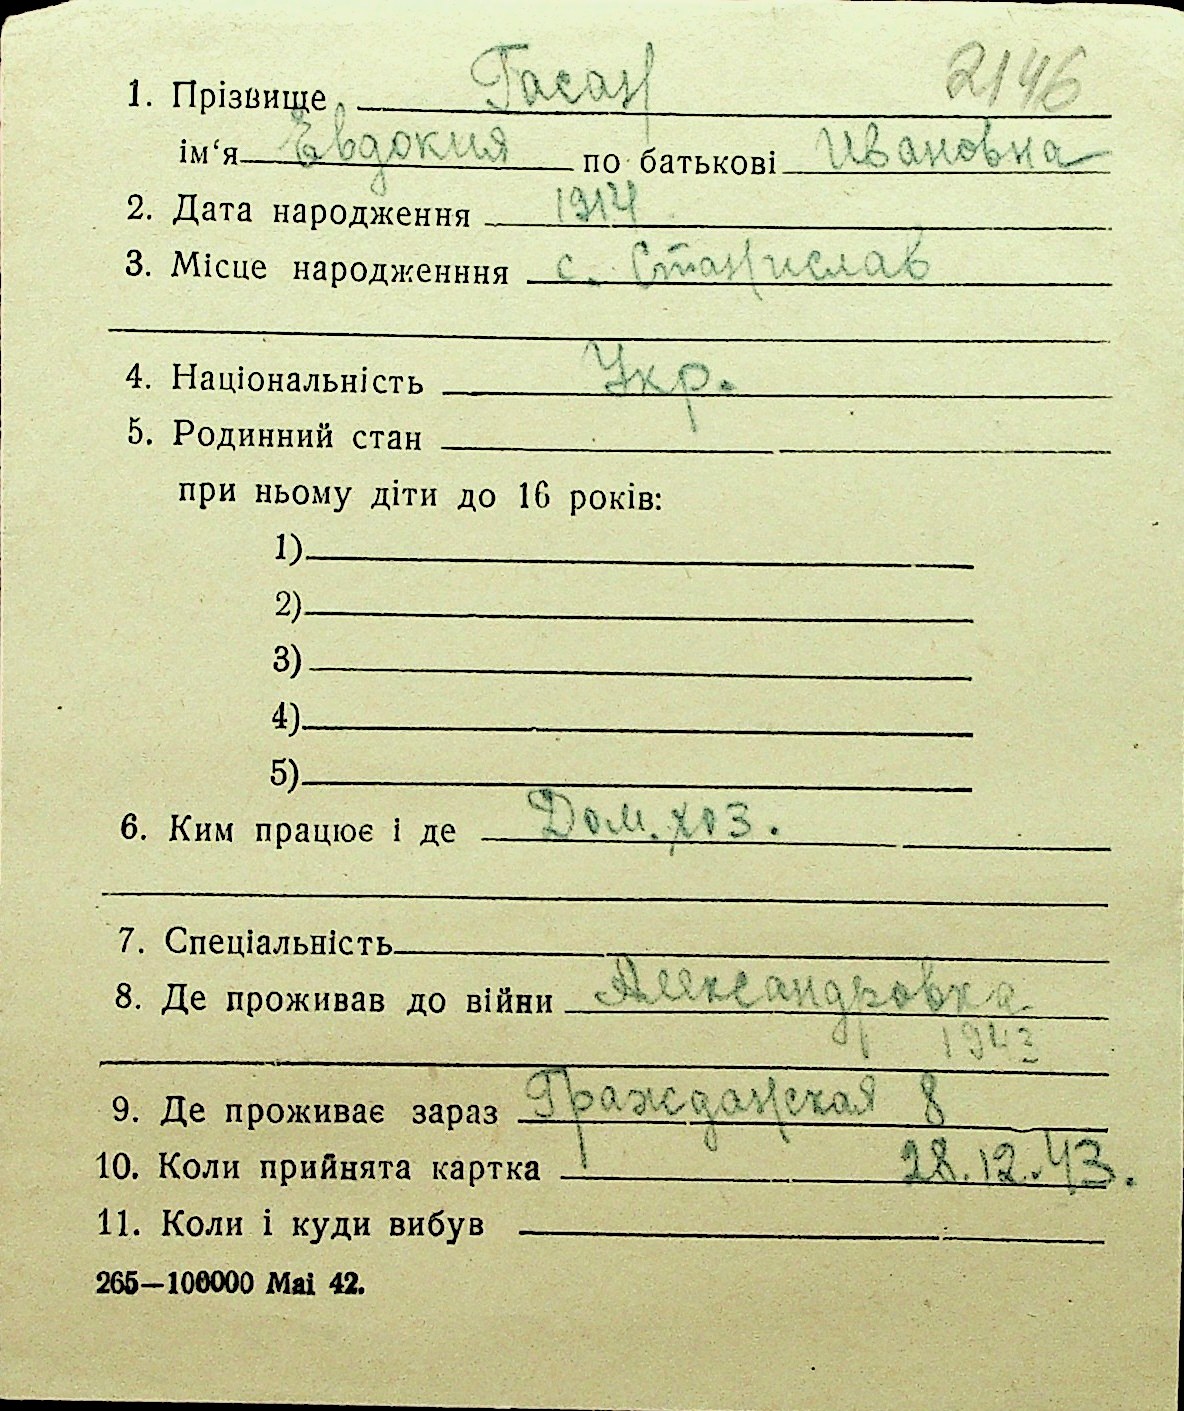 2146
1. Прізвище Гасан
ім‘я Евдокия по батькові Ивановна
2. Дата народження 1914
3. Місце народженння с. Станислав
4. Національність Укр.
5. Родинний стан
при ньому діти до 16 років:
1)
2)
3)
4)
5)
6. Ким працює і де Дом. хоз.
7. Спеціальність
8. Де проживав до війни Александровка
1943
9. Де проживає зараз Гражданская 8
10. Коли прийнята картка 28.12.43.
11. Коли і куди вибув
265—100000 Mai 42.